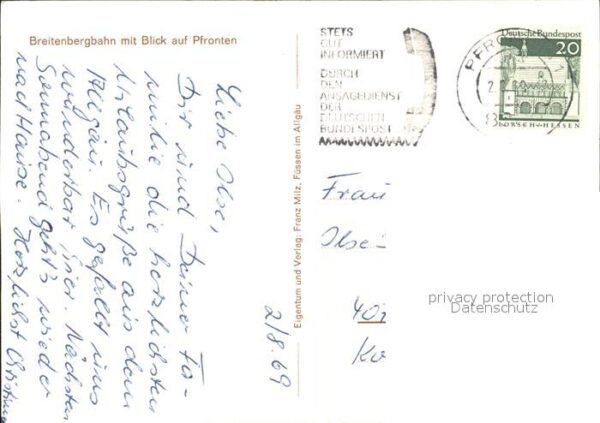 Breitenbergbahn mit Blick auf Pfronten
Liebe Ilse,
Dir und Deiner Fa-
milie die herzlichsten
Urlaubsgrüße aus dem
Allgäu. Es gefällt uns
wunderbar hier. Nächsten
Sonnabend geht's wieder
nach Hause. Herzlichst Christina
2/8.69
Eigentum und Verlag: Franz Milz, Füssen im Allgäu
STETS
GUT
INFORMIERT
DURCH
DEN
ANSAGEDIENST
DER
DEUTSCHEN
BUNDESPOST
PFRO
Deutsche Bundespost
20
LORSCH-HESSEN
Frau
Ilse
privacy protection
Datenschutz